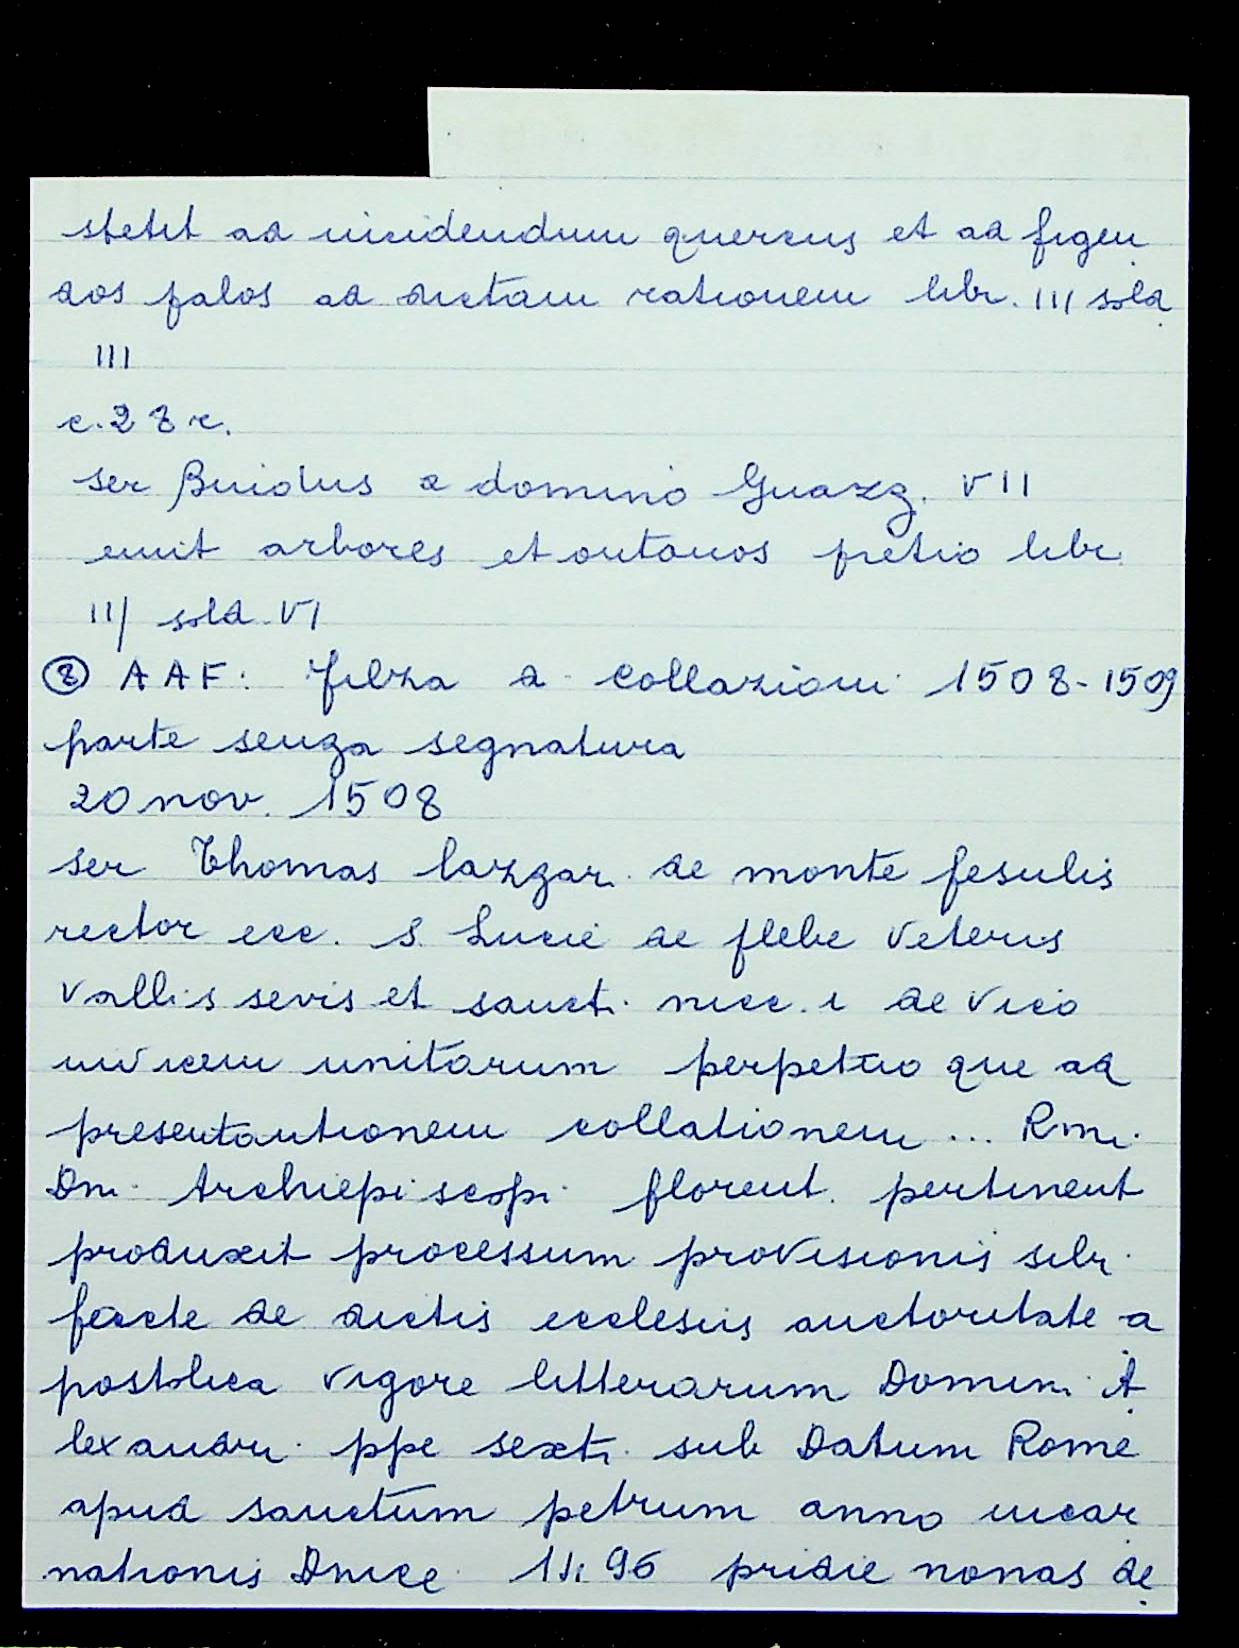 stetit ad incidendum quercus et ad figen
dos palos ad dictam rationem libr. III sold.
III
c. 28 r.
ser Buidus a domino Guazz. VII
emit arbores et ontanos pretio libr.
III sold. VI
⑧ AAF: Filza di Collazioni 1508-1509
parte senza segnatura
20 nov. 1508
ser Thomas lazzari de monte fesulis
rector ecc. S. Lucie de plebe veteris
vallis sevis et sancti nicc. i de vico
invicem unitarum perpetuo que ad
presentantionem collationem ... Rmi.
Dni. Archiepiscopi florent. pertinent
produxit processum provisionis sibi
facte de dictis ecclesiis auctoritate a
postolica vigore litterarum Domini A
lexandri ppe sexti sub Datum Rome
apud sanctum petrum anno incar
nationis Dnice 1496 pridie nonas de